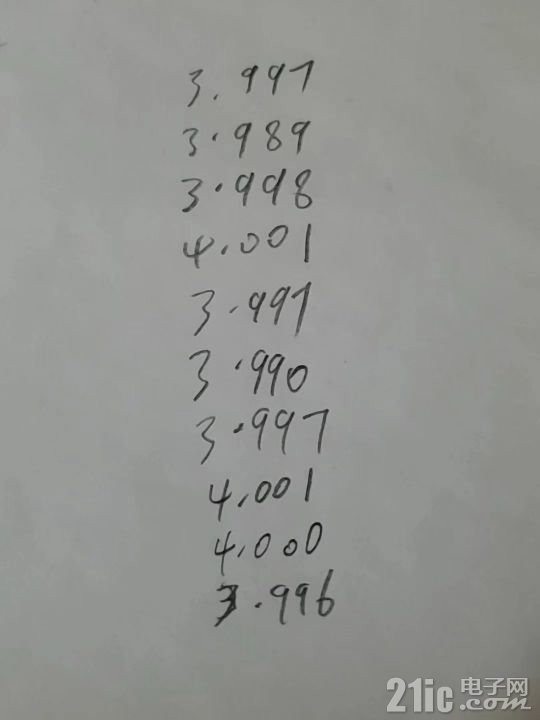 3.997
3.989
3.998
4.001
3.997
3.990
3.997
4.001
4.000
3.996
21ic 电子网
.com